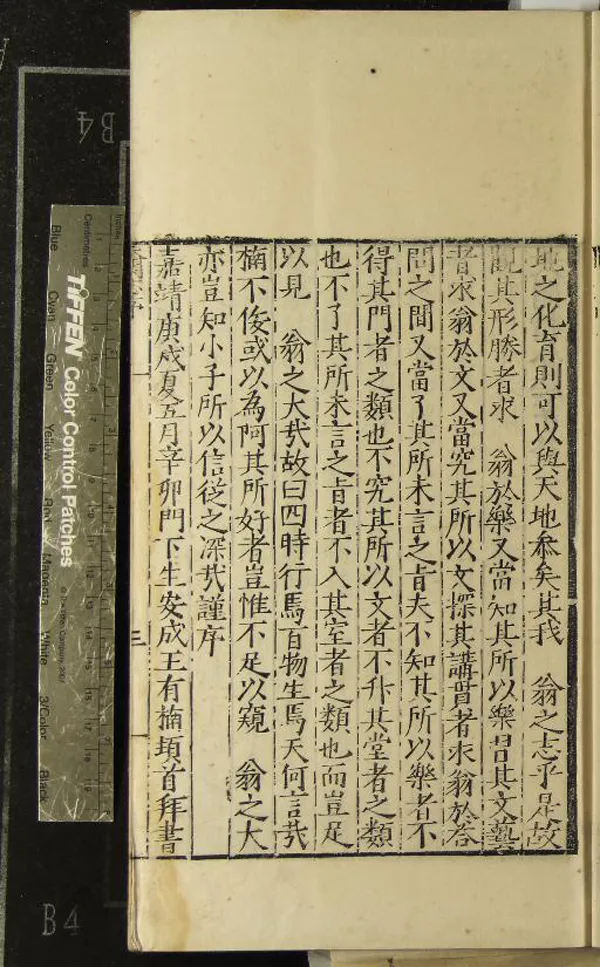 地之化育則可以與天地叅矣其我　翁之志乎是故
觀其形勝者求　翁於樂又當知其所以樂習其文藝
者求翁於文又當究其所以文探其講貫者求翁於答
問之間又當了其所未言之旨夫不知其所以樂者不
得其門者之類也不究其所以文者不升其堂者之類
也不了其所未言之旨者不入其室者之類也而豈足
以見　翁之大㢤故曰四時行焉百物生焉天何言㢤
楠不佞或以為阿其所好者豈惟不足以窺　翁之大
亦豈知小子所以信從之深㢤謹序
嘉靖庚戌夏五月辛卯門下生安成王有楠頓首拜書
三
Inches
Centimetres
TIFFEN Color Control Patches
© The Tiffen Company, 2007
Blue
Cyan
Green
Yellow
Red
Magenta
White
3/Color
Black
B4
B4